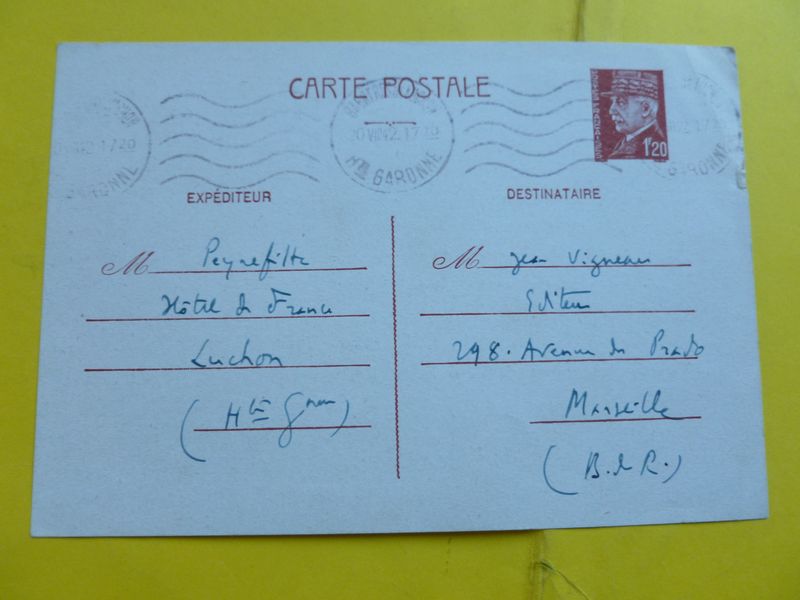 CARTE POSTALE
17 20
Hte GARONNE
1F20
EXPÉDITEUR
M Peyrefitte
Hôtel de France
Luchon
(Hte Gnne)
DESTINATAIRE
M Jean Vigneau
Editeur
298. Avenue du Prado
Marseille
(B. d R.)